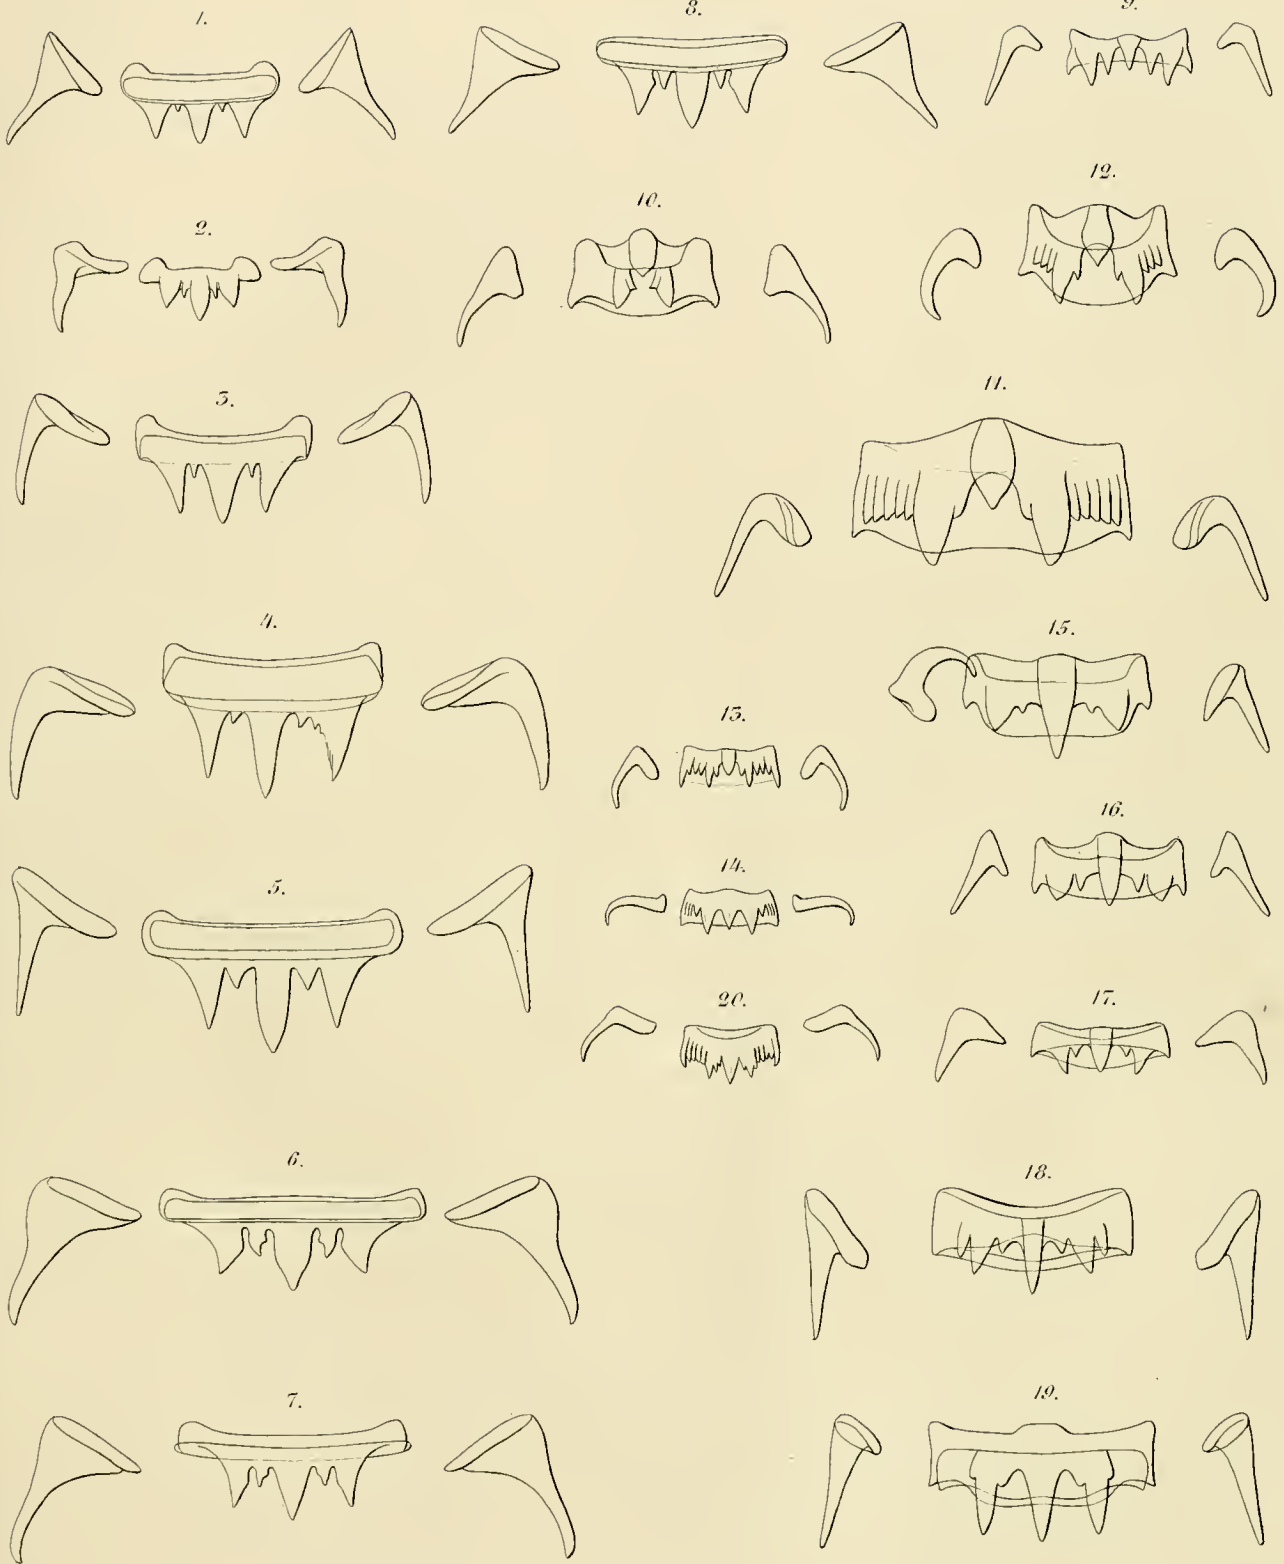 1.
8.
9.
2.
10.
12.
3.
11.
4.
15.
13.
16.
14.
5.
20.
17.
6.
18.
7.
19.